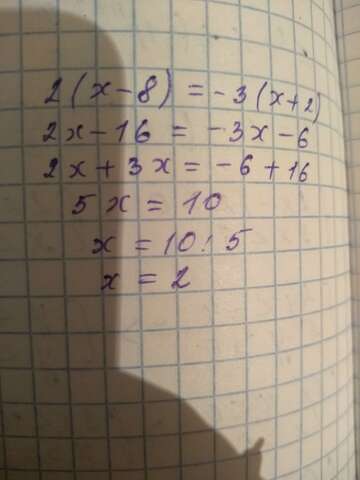 2(x-8) = -3(x+2)
2x-16 = -3x-6
2x+3x = -6+16
5x = 10
x = 10:5
x = 2